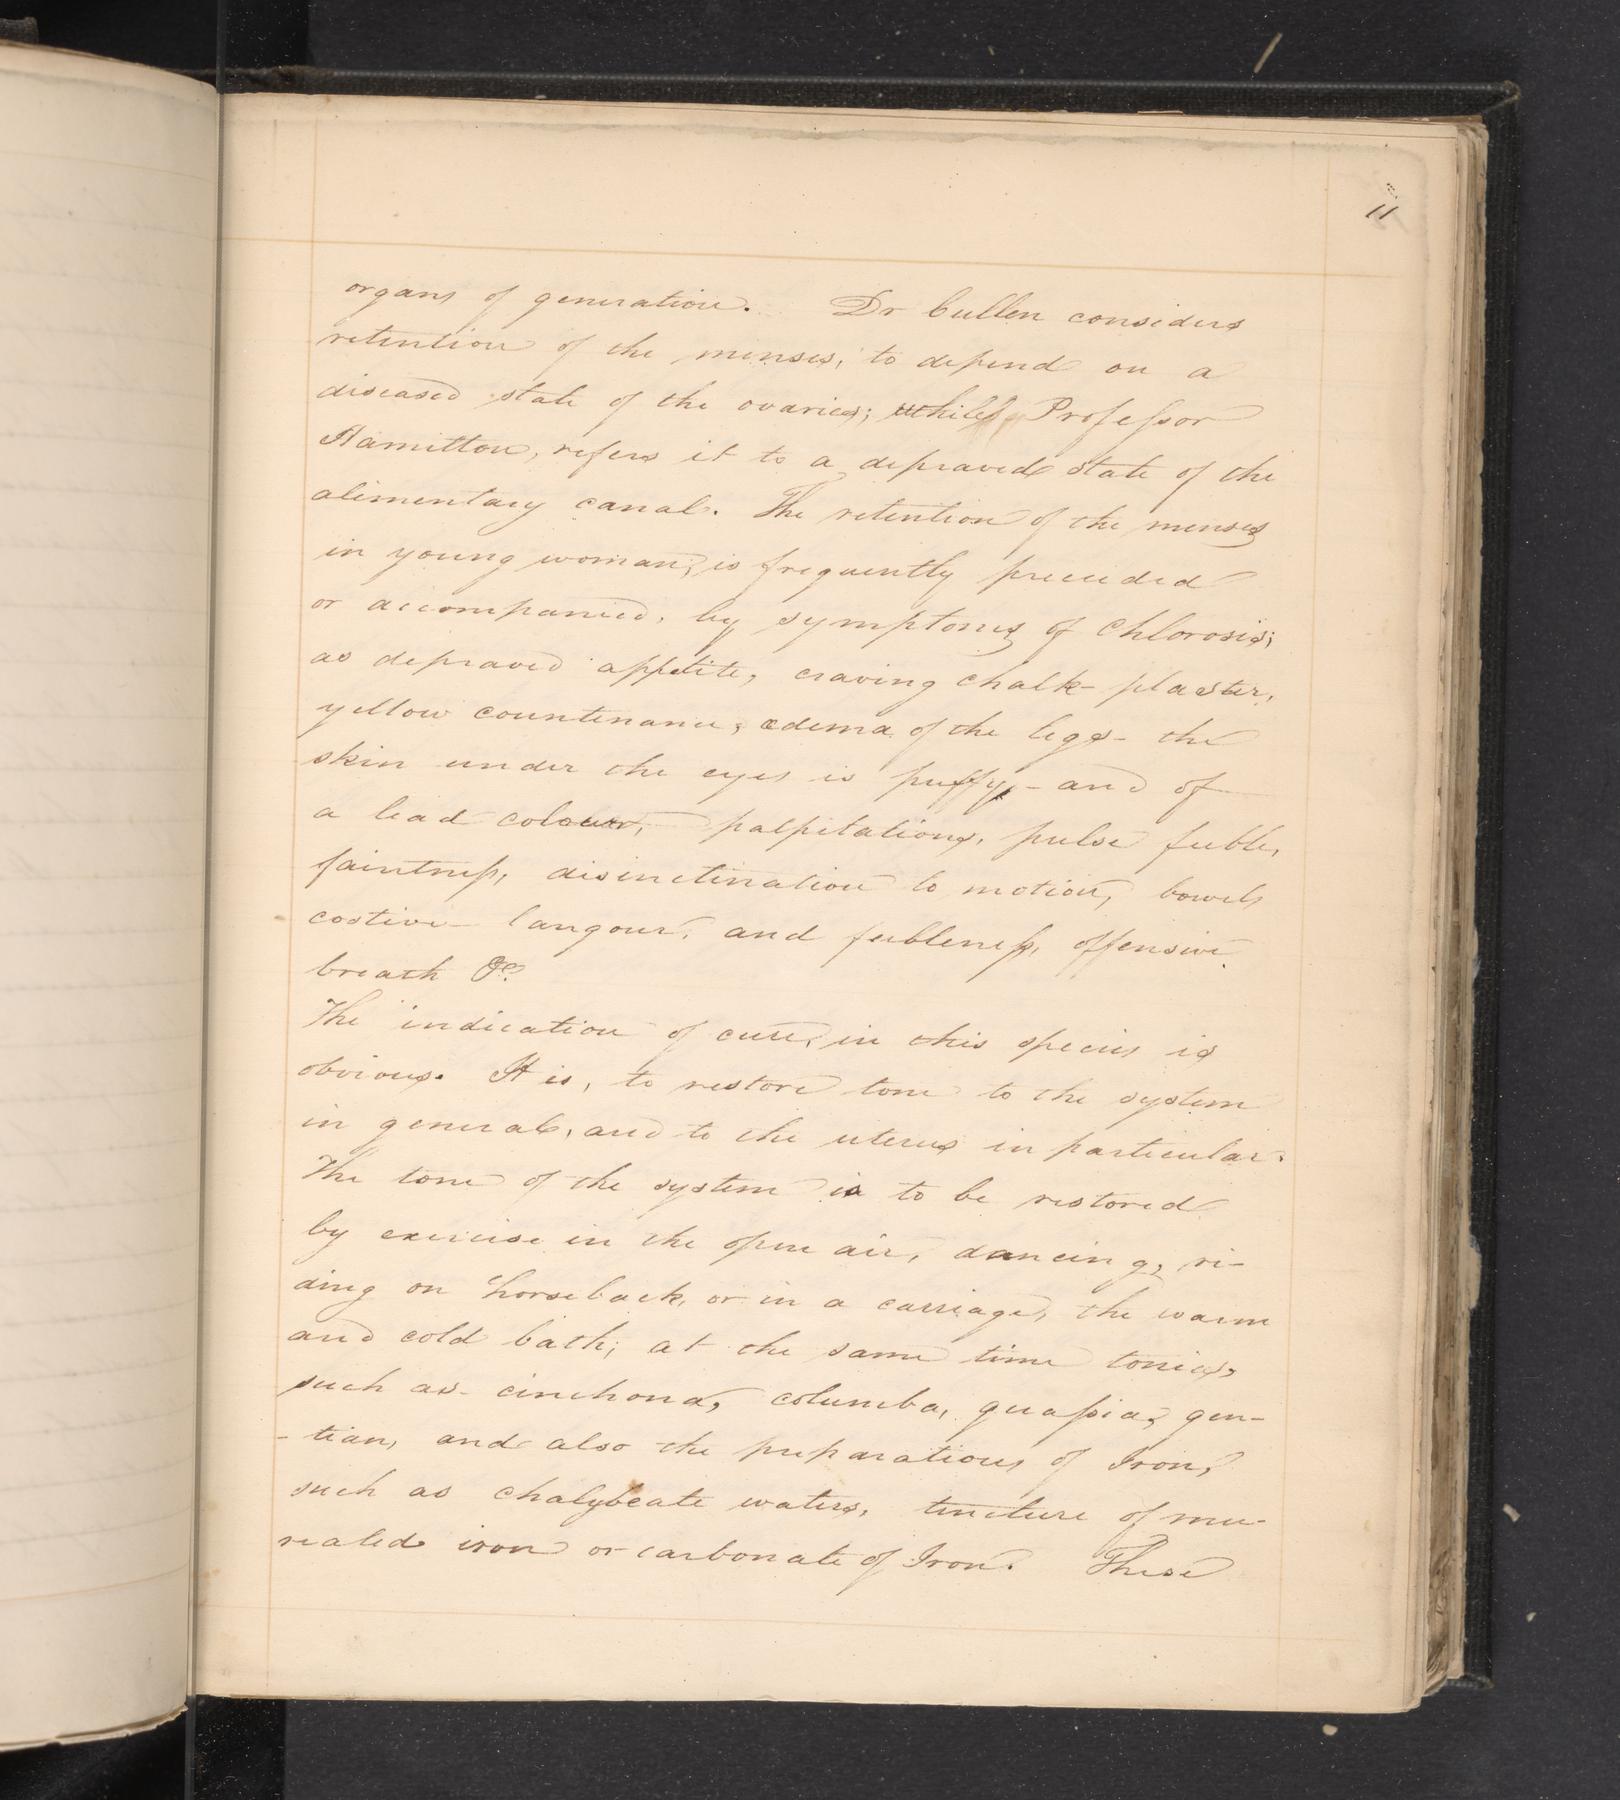 11
organs of generation. Dr Cullen considers
retention of the menses, to depend on a
diseased state of the ovaries; whilst Professor
Hamilton, refers it to a depraved state of the
alimentary canal. The retention of the menses
in young woman, is frequently preceded
or accompanied, by symptoms of Chlorosis;
as depraved appetite, craving chalk - plaster,
yellow countenance, œdema of the legs - the
skin under the eyes is puffy, - and of
a lead colour, palpitations, pulse feeble,
faintness, disinclination to motion, bowels
costive - langour, and feebleness, offensive
breath &c.
The indication of cure, in this species is
obvious. It is, to restore tone to the system
in general, and to the uterus in particular.
The tone of the system is to be restored
by exercise in the open air, dancing, ri-
ding on horseback, or in a carriage, the warm
and cold bath; at the same time tonics,
such as - cinchona, columba, quassia, gen-
-tian, and also the preparations of Iron,
such as chalybeate waters, tincture of mu-
reated iron or carbonate of Iron. These